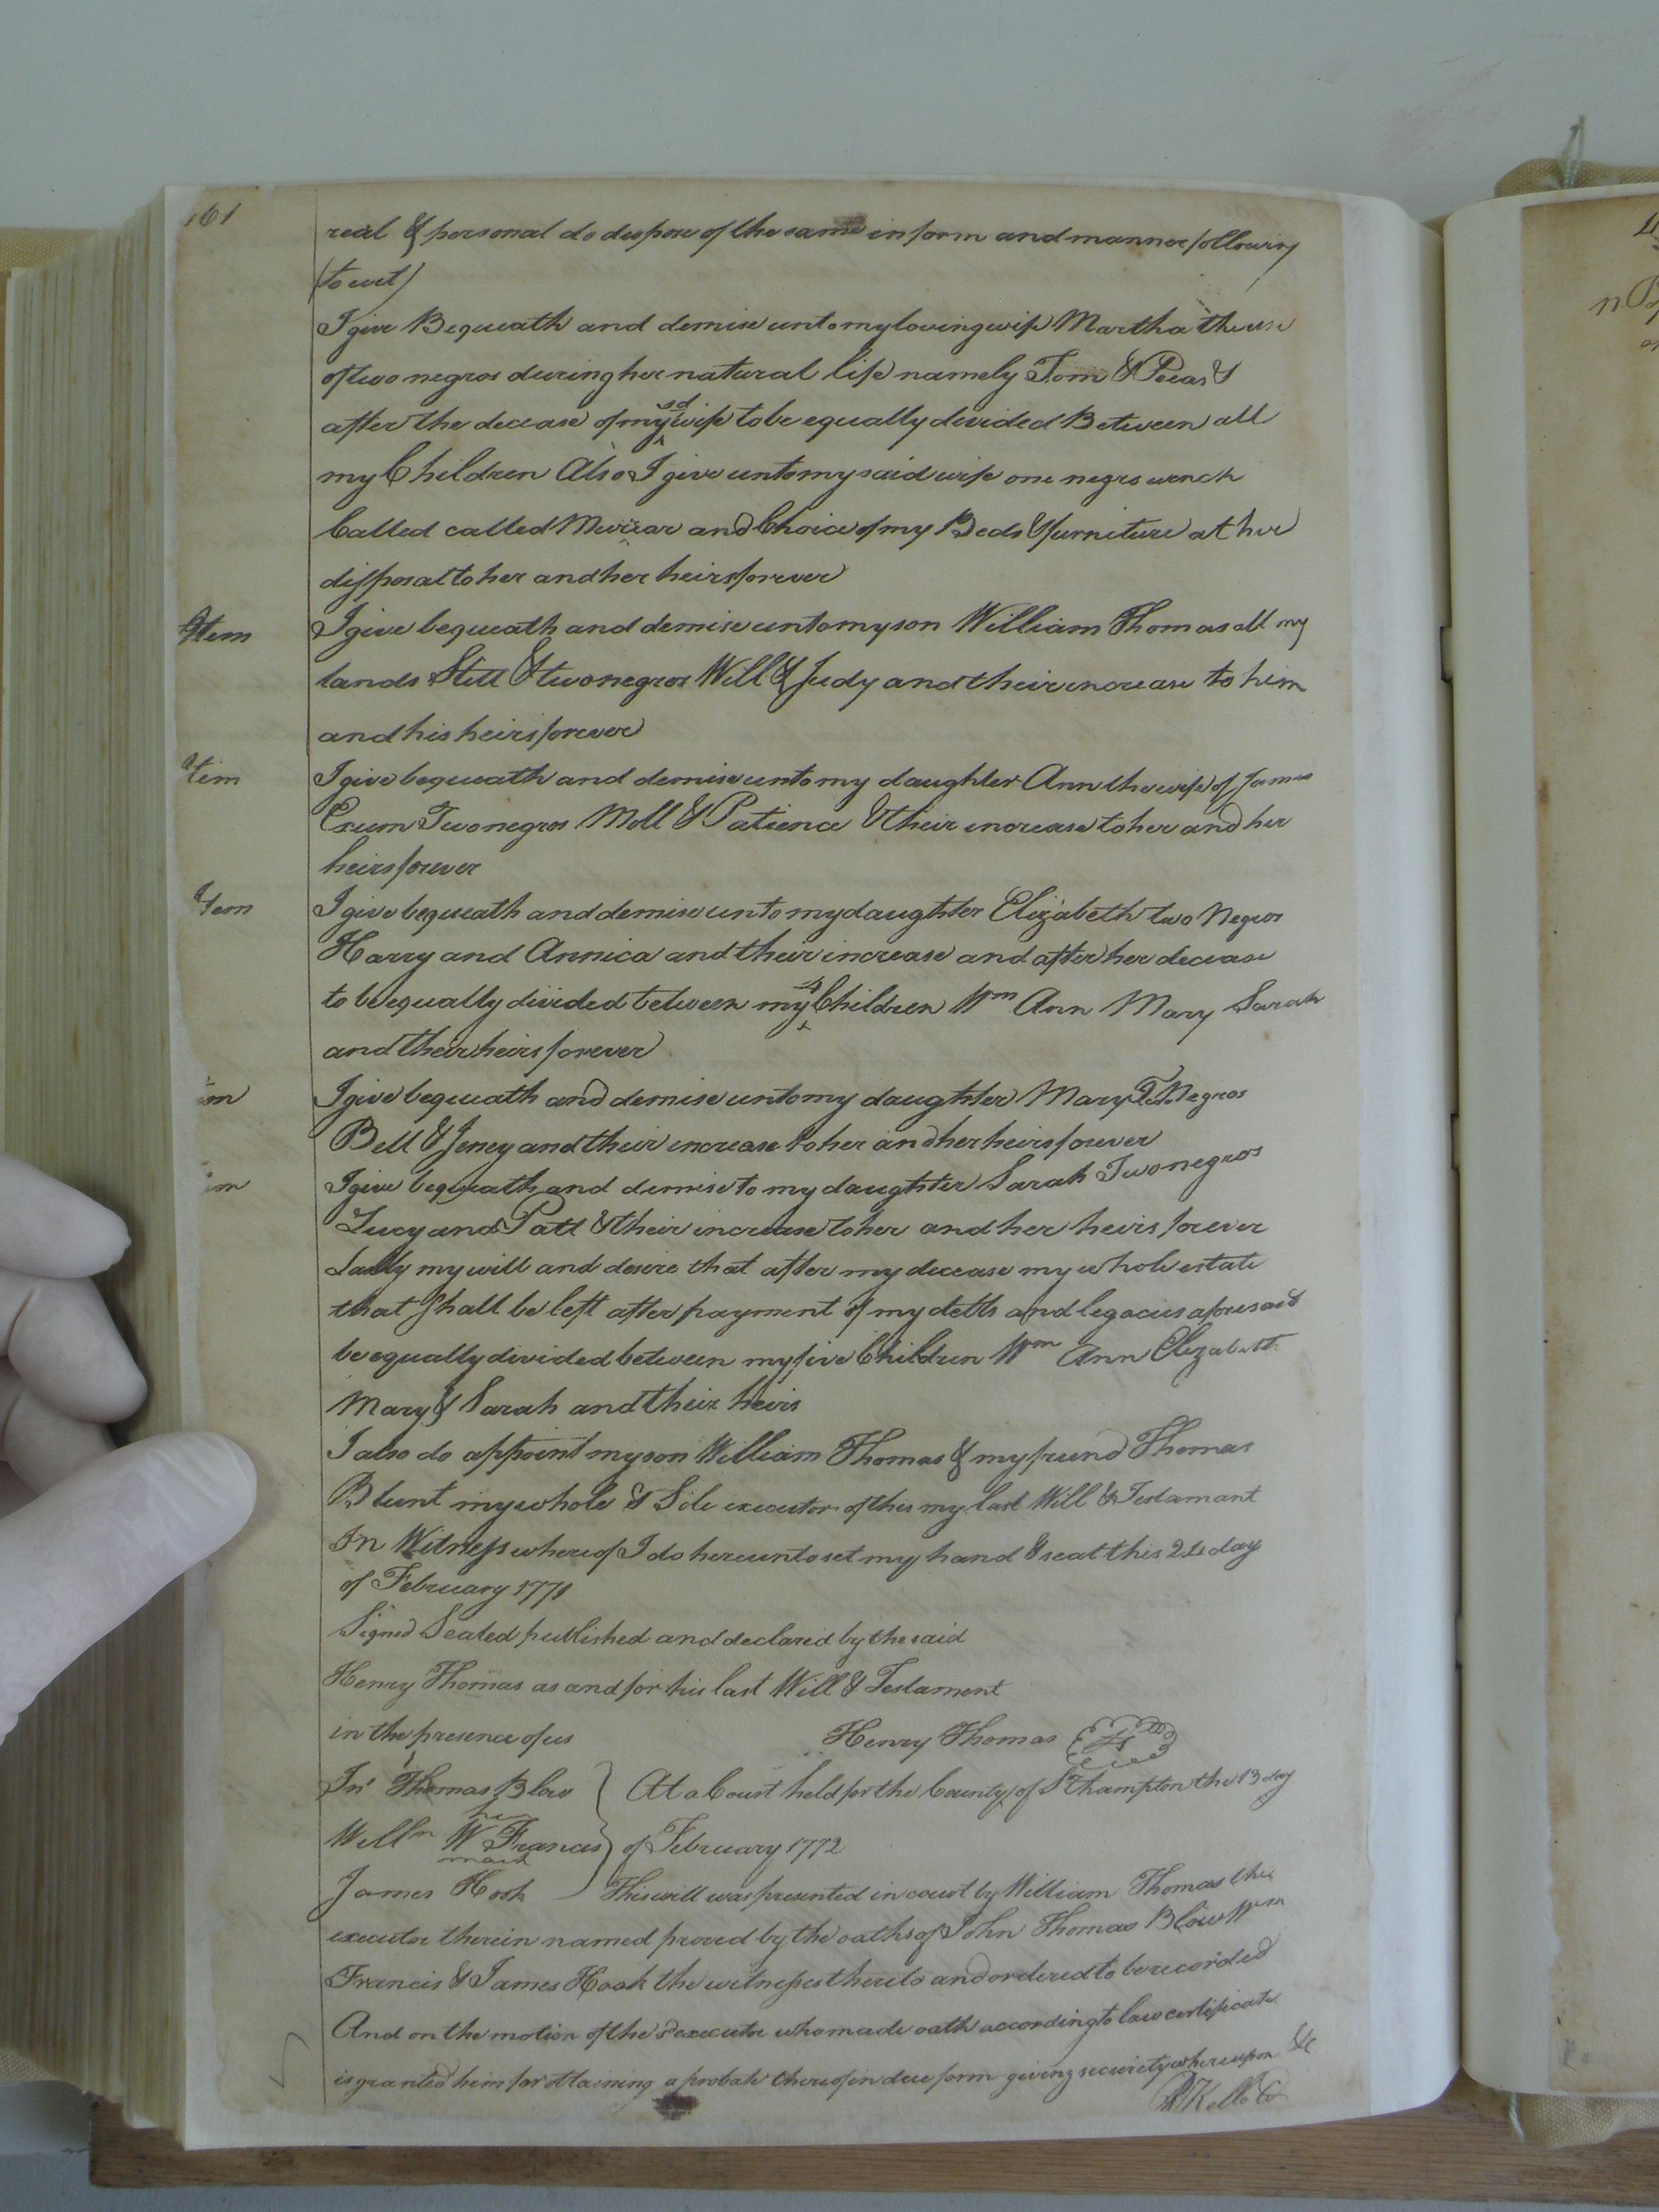 161
real & personal do dispose of the same in form and manner following
(to wit)
I give Bequeath and demise unto my loving wife Martha the use
of two negros during her natural life namely Tom & Pecas &
after the decease of my sd wife to be equally devided Between all
my Children Also I give unto my said wife one negro wench
Called called Murrear and Choice of my Beds & furniture at her
disposal to her and her heirs forever
Item I give bequeath and demise unto my son William Thomas all my
lands Still & two negros Will & Judy and their increase to him
and his heirs forever
Item I give bequeath and demise unto my daughter Ann the wife of James
Exum Two negros Moll & Patience & their increase to her and her
heirs forever
Item I give bequeath and demise unto my daughter Elizabeth two Negros
Harry and Annica and their increase and after her decease
to be equally divided between my sd Children Wm Ann Mary Sarah
and their heirs forever
em I give bequeath and demise unto my daughter Mary Two Negros
Bell & Jeney and their increase to her and her heirs forever
em I give bequeath and demise to my daughter Sarah Two negros
Lucy and Patt & their increase to her and her heirs forever
Lastly my will and desire that after my decease my whole estate
that shall be left after payment of my debts and legacies aforesaid
be equally divided between my five Children Wm Ann Elizabeth
Mary & Sarah and their heirs
I also do appoint my son William Thomas & my friend Thomas
Blunt my whole & Sole executors of this my last Will & Testamant
In Witness whereof I do hereunto set my hand & seal this 21 day
of February 1771
Signed Sealed published and declared by the said
Henry Thomas as and for his last Will & Testament
in the presence of us Henry Thomas LS
Jno Thomas Blow At a Court held for the County of Sthampton the 13 day
his
Willm W Francis of February 1772
mark
James Hook This will was presented in court by William Thomas the
executor therein named proved by the oaths of John Thomas Blow Wm
Francis & James Hook the witnesses thereto and ordered to be recorded
And on the motion of the sd executor who made oath according to law certificate
is granted him for obtaining a probate thereof in due form giving security whereupon &c
R Kello CC